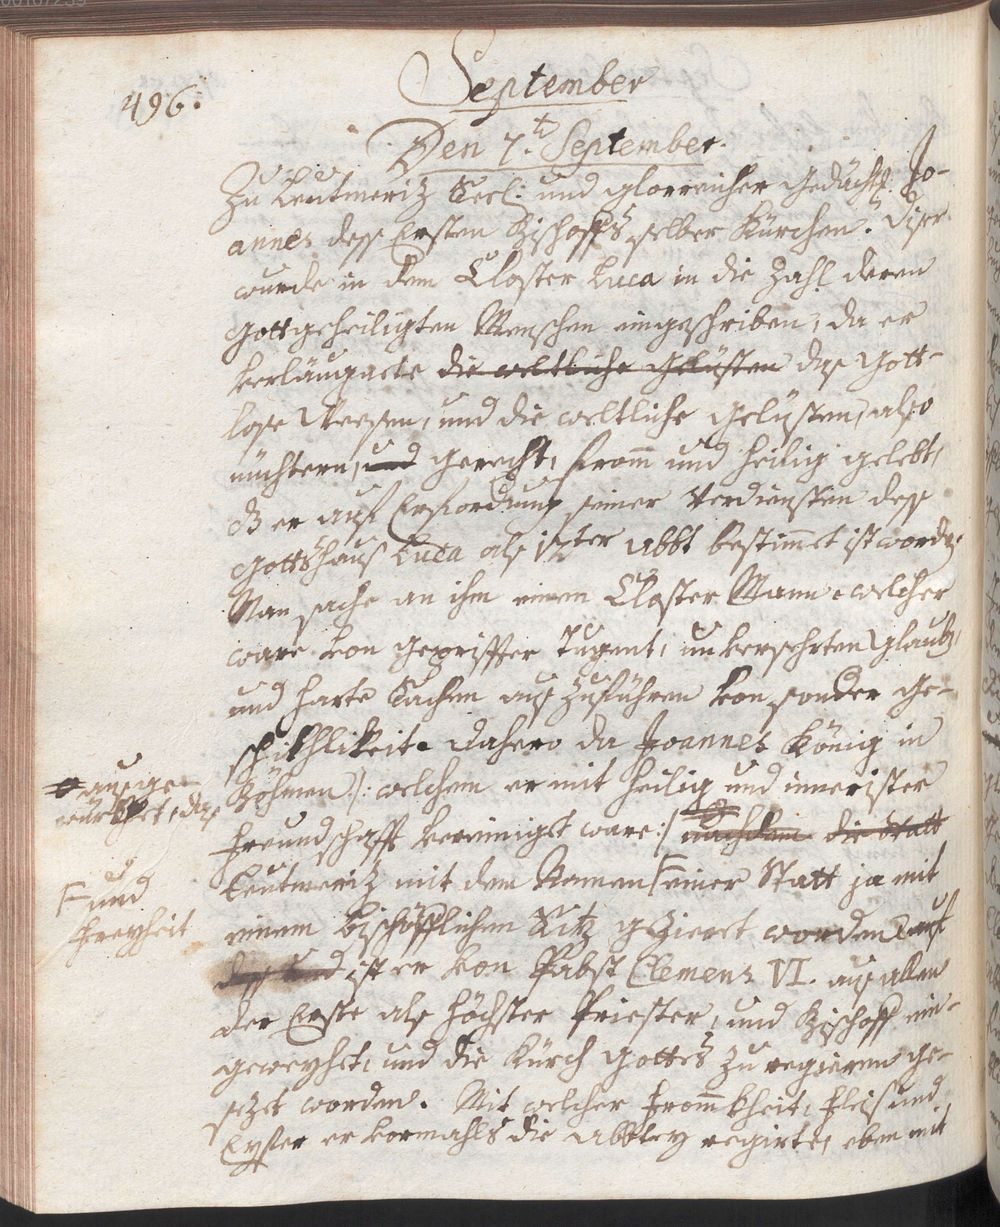 September
496.
Den 7.t September.
Zu Leutmeritz Seel: und glorreicher Gedächts. Jo-
annes dess Ersten Bischoffs selber Kürchen. Diser
wurde in dem Closter Luca in die Zahl deren
Gottgeheiligten Menschen eingeschriben, da er
verläugnete die weltliche Gelüsten das Gott-
lose Weesen, und die weltliche Gelüsten, also
nüchtern, und gerecht, fromm und heilig gelebt,
dz er auf Erfordung seiner Verdiensten dess
Gottshaus Luca als 12ter Abbt bestimmet ist worden.
Man sache an ihm einen Closter Mann, welcher
ware von geprüffter Tugent, unversehrten Glaub,
und harte Sachen auszuführen von sonder Ge-
schiklikeit. Dahero da Joannes König in
Böhmen /: welchem er mit heilig und innerister
Freundschafft vereiniget ware :/ nachdem die Statt
Leutmeritz mit dem Namen F einer Statt ja mit
einem bischöfflichen Sitz gezieret worden, auf
ist er von Pabst Clemens VI. aus allen
der Erste als höchster Priester, und Bischoff ein-
geweyhet, und die Kürch Gottes zu regieren ge-
setzet worden. Mit welcher Frommkheit, Fleis und
Eyffer er vormahls die Abbtey regirte, eben mit
ausge-
würkhet, das
F und
Freyheit